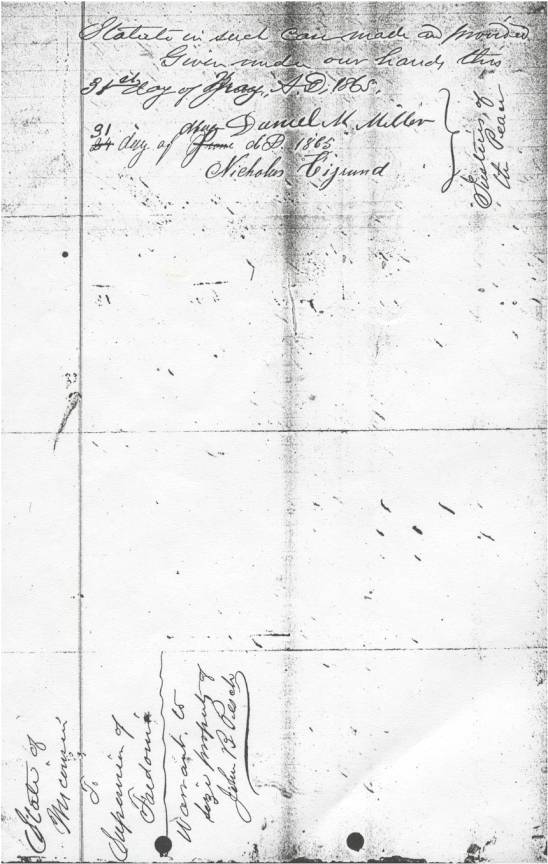 Statute in such case made and provided
Given under our hands this
31st day of May, A.D. 1865.
Daniel M Miller
31 24 day of May June A D. 1865
Nicholas Cigrand
Justices of
the Peace
State of
Wisconsin
To
Supervisors of
Fredonia
Warrant to
seize property of
John B Pesch